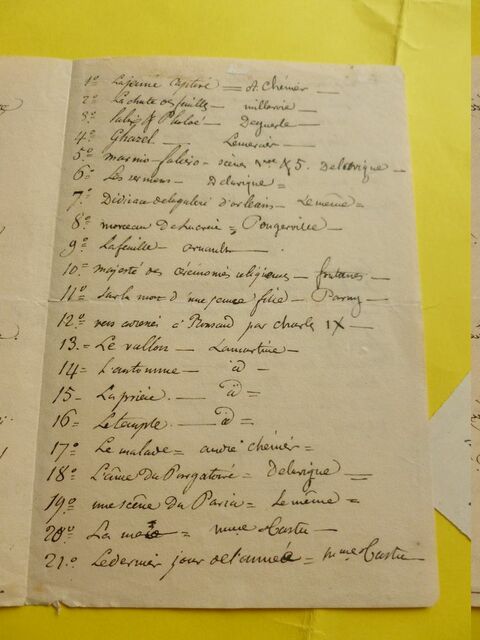 1º La jeune Captive = A. Chénier —
2º La chute des feuilles — millevoie —
3º — Deguerle —
4º Ghazel. — Lemercier —
5º marino-faliero — scènes & 5. Delavigne —
6º Les — Delavigne =
7º d'orléans — Le même =
8º morceau de Lucrèce = Pongerville =
9º La feuille — arnault —
10= majesté des cérémonies religieuses — fontanes —
11º Sur la mort d'une jeune fille — Parny —
12º vers adressés à Ronsard par charles IX —
13.= Le vallon — Lamartine —
14= L'automne — id —
15 — La prière. — id =
16 — Le temple — id =
17º Le malade = andré chénier =
18º L'âme du Purgatoire = Delavigne =
19º une scène du Paria = Le même =
20º La = mme Tastu —
21.º Le dernier jour de l'année = mme Tastu —